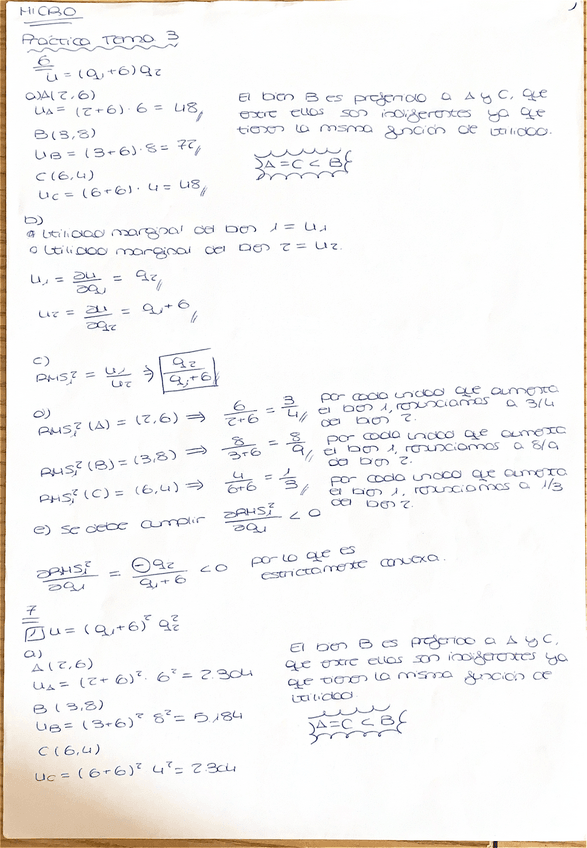 MICRO
Práctica Tema 3
6
u = (q₁+6) q₂
a) A(2,6)
u_A = (2+6) · 6 = 48
B(3,8)
u_B = (3+6) · 8 = 72
C(6,4)
u_C = (6+6) · 4 = 48
El bien B es preferido a A y C, que
entre ellas son indiferentes ya que
tienen la misma función de utilidad.
A=C < B
b)
Utilidad marginal del bien 1 = u₁
Utilidad marginal del bien 2 = u₂.
u₁ = ∂u/∂q₁ = q₂
u₂ = ∂u/∂q₂ = q₁+6
c)
RMS₁² = u₁/u₂ ⇒ q₂/(q₁+6)
d)
RMS₁²(A) = (2,6) ⇒ 6/(2+6) = 3/4
por cada unidad que aumenta
el bien 1, renunciamos a 3/4
del bien 2.
RMS₁²(B) = (3,8) ⇒ 8/(3+6) = 8/9
por cada unidad que aumenta
el bien 1, renunciamos a 8/9
del bien 2.
RMS₁²(C) = (6,4) ⇒ 4/(6+6) = 1/3
por cada unidad que aumenta
el bien 1, renunciamos a 1/3
del bien 2.
e) Se debe cumplir ∂RMS₁²/∂q₁ < 0
∂RMS₁²/∂q₁ = -q₂/(q₁+6) < 0
por lo que es
estrictamente convexa.
7
1 u = (q₁+6)² q₂²
a)
A(2,6)
u_A = (2+6)² · 6² = 2.304
B(3,8)
u_B = (3+6)² 8² = 5.184
C(6,4)
u_C = (6+6)² 4² = 2.304
El bien B es preferido a A y C,
que entre ellas son indiferentes ya
que tienen la misma función de
utilidad.
A=C < B